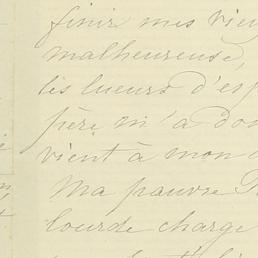 finir mes vieu
malheureuse,
les lueurs d'esp
père m'a don
vient à mon
Ma pauvre
lourde charge